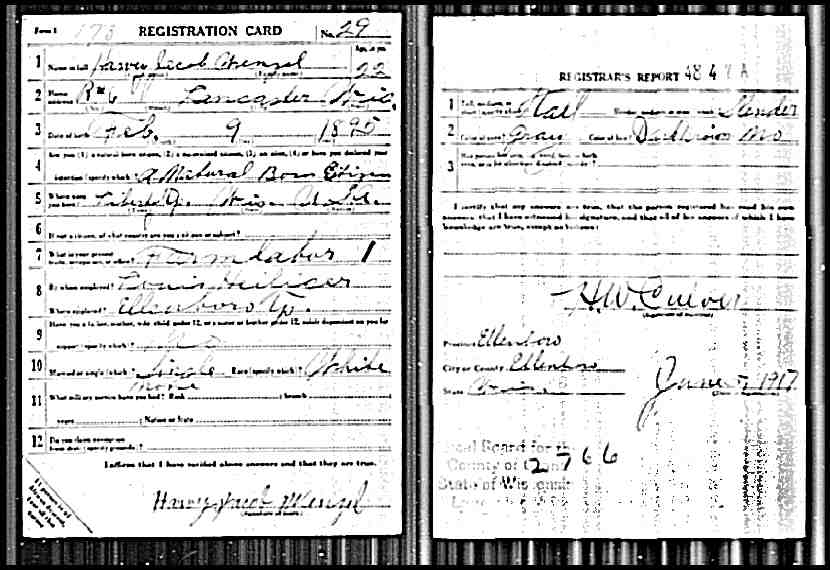 Form 1 173 REGISTRATION CARD No. 29
1 Name in full Harvey Jacob Wenzel Age, in yrs. 22
(Given name) (Family name)
2 Home address R#6 Lancaster Wis.
3 Date of birth Feb. 9 1895
4 Are you (1) a natural born citizen, (2) a naturalized citizen, (3) an alien, (4) or have you declared your
intention (specify which)? A Natural Born Citizen
5 Where were you born? Liberty Wis. U.S.A.
6 If not a citizen, of what country are you a citizen or subject?
7 What is your present trade, occupation, or office? Farm labor 1
8 By whom employed? Louis
Where employed? Ellenboro Tp.
9 Have you a father, mother, wife, child under 12, or a sister or brother under 12, solely dependent on you for
support (specify which)? No
10 Married or single (which)? Single Race (specify which)? White
None
11 What military service have you had? Rank ; branch
years ; Nation or State
12 Do you claim exemption from draft (specify grounds)?
I affirm that I have verified above answers and that they are true.
Harvey Jacob Wenzel
REGISTRAR'S REPORT
1 Tall, medium, or short (specify which)? Tall Slender, medium, or stout (which)? Slender
2 Color of eyes? Gray Color of hair? No
3
I certify that my answers are true, that the person registered has read his own
answers, that I have witnessed his signature, and that all of his answers of which I have
knowledge are true, except as follows:
H.W. Culver
(Signature of registrar)
Precinct Ellenboro
City or County Ellenboro
State Wis. June 5, 1917
Local Board for the
County of Grant 2766
State of Wisconsin